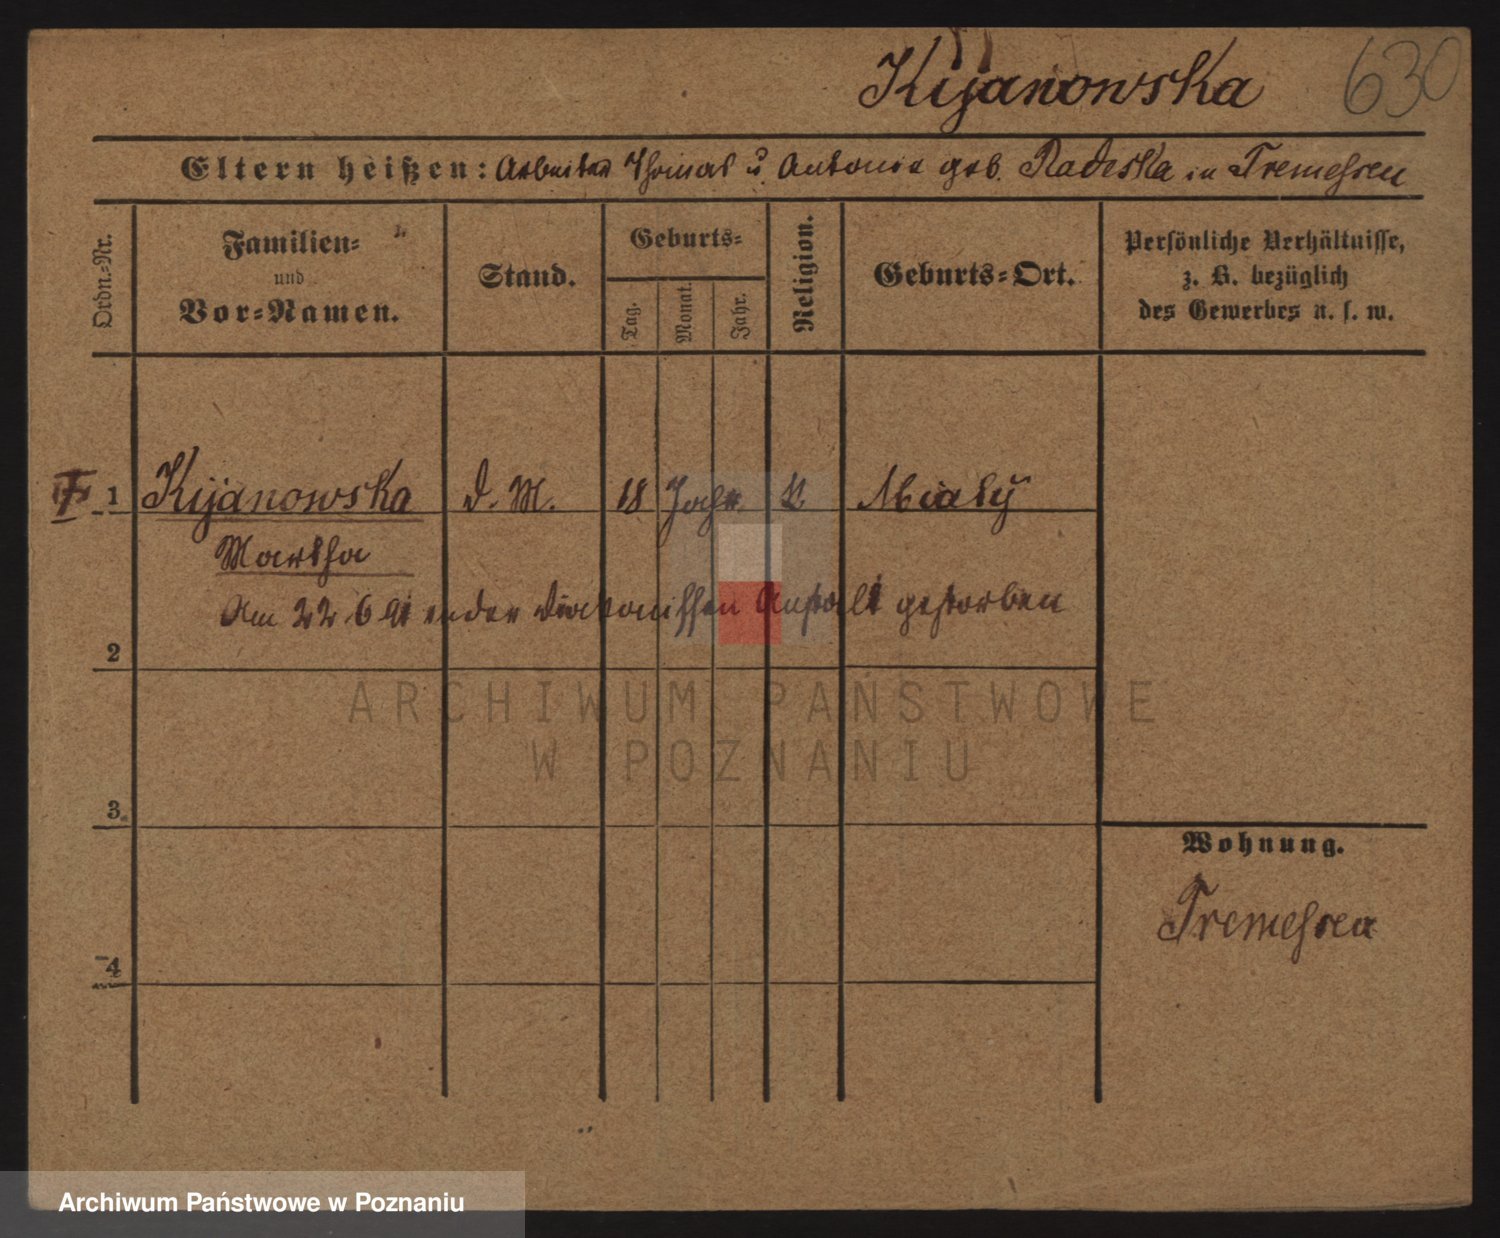 Kijanowska 630
Eltern heißen: Arbeiter Thomas u. Antonie geb. Radeska in Tremessen
Ordn.-Nr. Familien- und Vor-Namen. Stand. Geburts- Tag. Monat. Jahr. Religion. Geburts-Ort. Persönliche Verhältnisse, z. B. bezüglich des Gewerbes u. s. w.
1 Kijanowska D. M. 18 Jahr k.
Martha
Am 22 6 in der Diakonissen Anstalt gestorben
2
ARCHIWUM PAŃSTWOWE
W POZNANIU
3.
Wohnung.
Tremessen
4
Archiwum Państwowe w Poznaniu